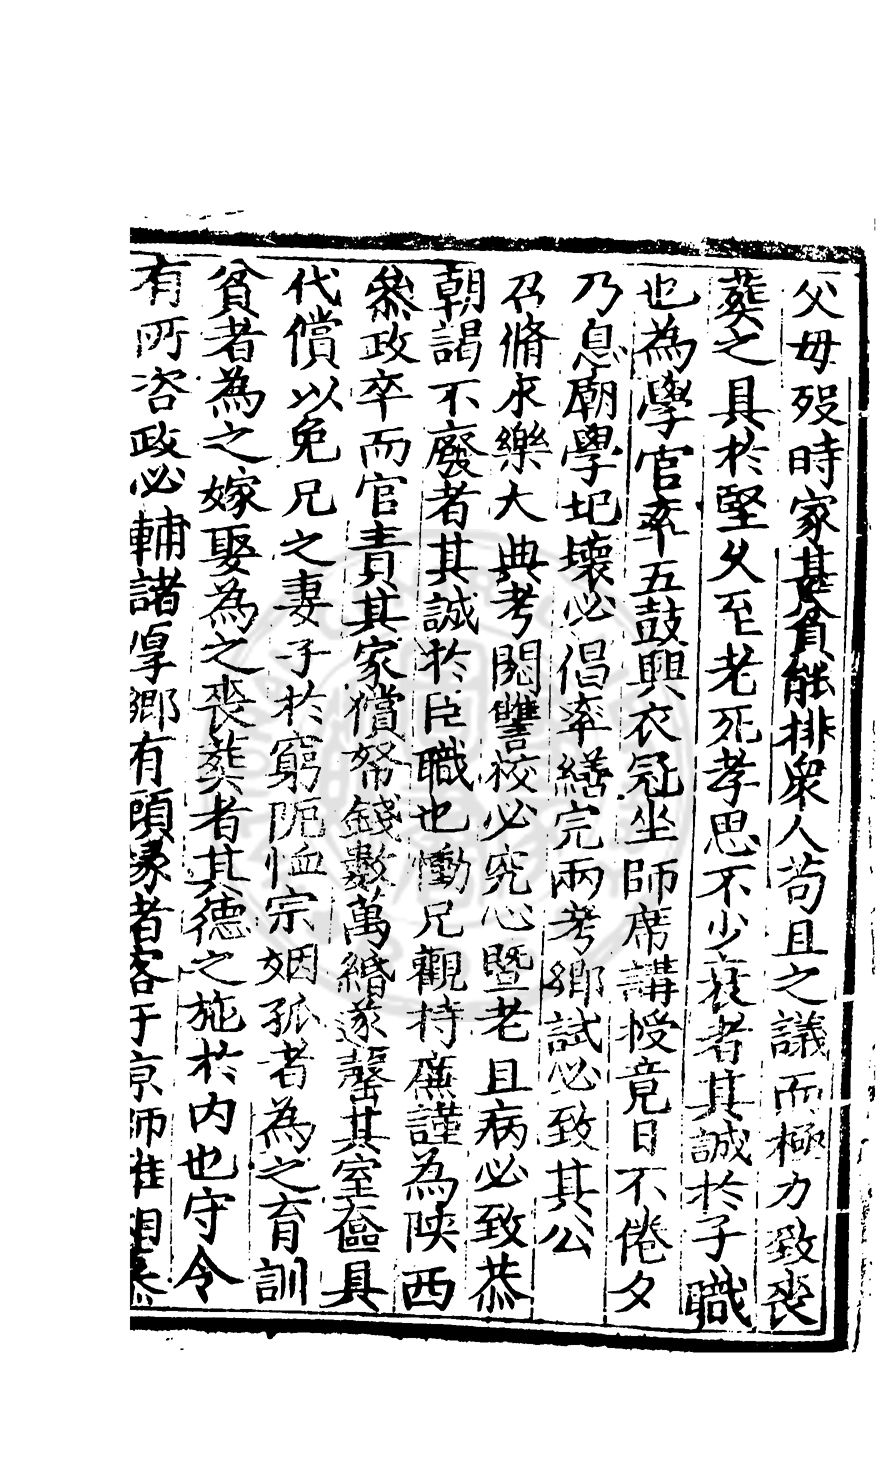 父母歿時家甚貧能排衆人茍且之議而極力致喪
葬之具於堅久至老死孝思不少衰者其誠於子職
也為學官率五鼓興衣冠坐師席講授竟日不倦夕
乃息廟學圮壞必倡率繕完兩考鄉試必致其公
召脩永樂大典考閱讐校必究心暨老且病必致恭
朝謁不廢者其誠於臣職也慟兄觀持廉謹為陝西
叅政卒而官責其家償帑錢數萬緡遂罄其室奩具
代償以免兄之妻子於窮阨恤宗姻孤者為之育訓
貧者為之嫁娶為之喪葬者其德之施於內也守令
有所咨政必輔諸厚鄉有頭緣者客于京師惟相慕